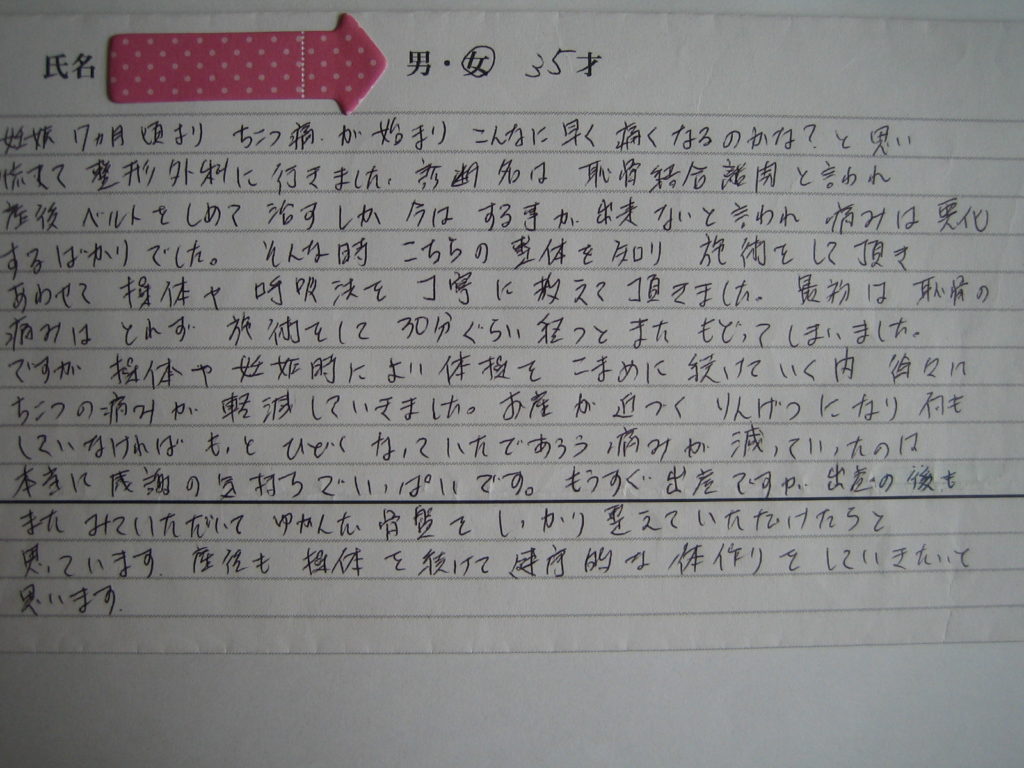 氏名 男・女 35才
妊娠 7ヵ月 頃より ちこつ痛 が 始まり こんなに 早く 痛くなるのかな? と 思い
慌てて 整形外科に 行きました。診断名は 恥骨結合離開 と言われ
産後 ベルトをしめて 治すしか 今は する事が 出来ないと言われ 痛みは 悪化
するばかりでした。そんな時 こちらの 整体を知り 施術をして頂き
あわせて 操体や 呼吸法を 丁寧に 教えて頂きました。最初は 恥骨の
痛みは とれず 施術をして 30分ぐらい 経つと また もどってしまいました。
ですが 操体や 妊娠時によい 体操を こまめに 続けていく内 徐々に
ちこつの痛みが 軽減していきました。お産が 近づく りんげつになり 何も
していなければ もっと ひどくなっていたであろう 痛みが 減っていったのは
本当に 感謝の気持ちでいっぱいです。もうすぐ 出産ですが 出産の後も
また みていただいて ゆがんだ 骨盤を しっかり 整えていただけたらと
思っています。産後も 操体を 続けて 健康的な 体作りを していきたいと
思います。